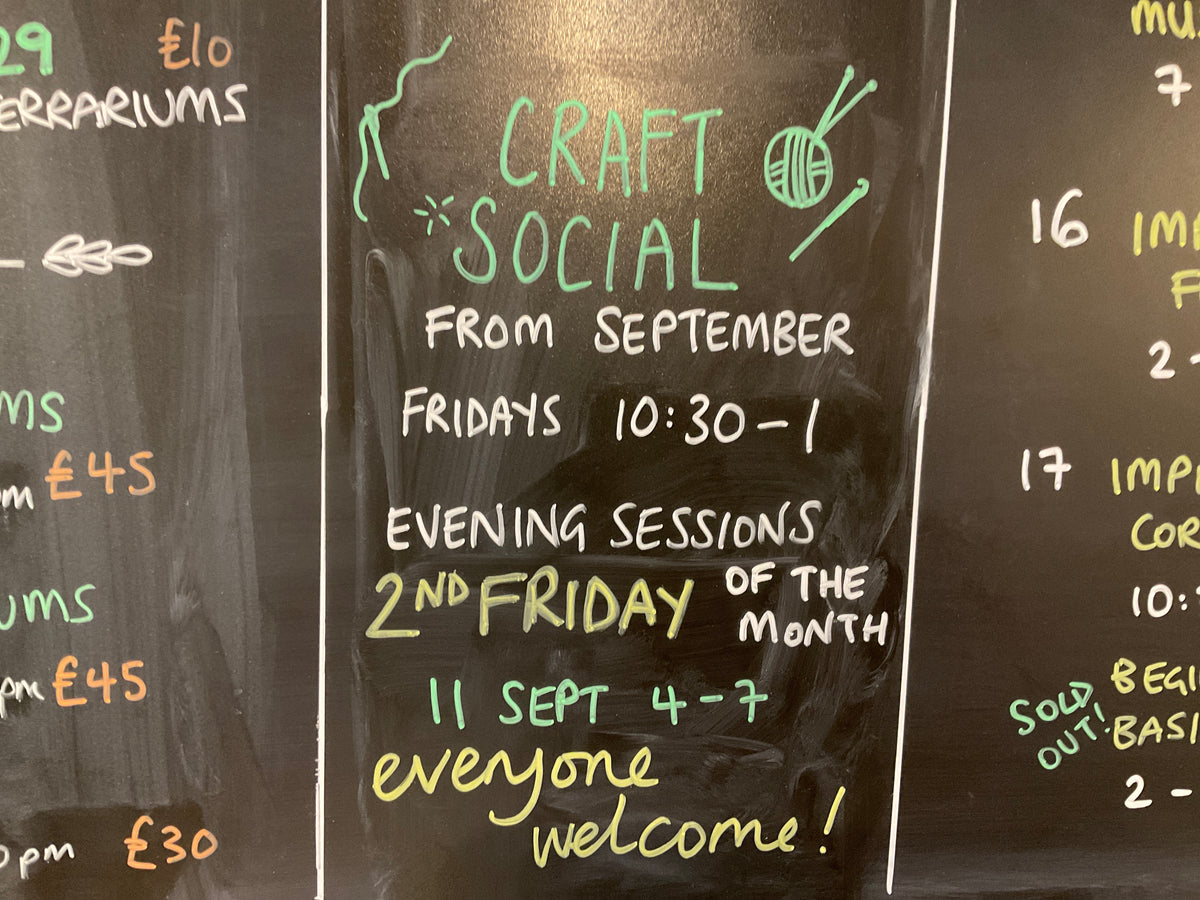 29 £10
TERRARIUMS
MS
pm £45
UMS
pm £45
pm £30
CRAFT
SOCIAL
FROM SEPTEMBER
FRIDAYS 10:30-1
EVENING SESSIONS
2ND FRIDAY OF THE
MONTH
11 SEPT 4-7
everyone
welcome!
MUS
7
16 IM
F
2-
17 IMP
COR
10:
SOLD OUT! BEGI
BASI
2-